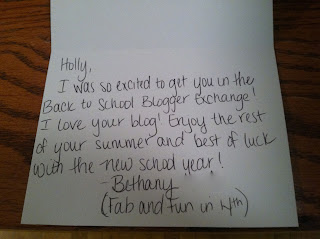 Holly,
I was so excited to get you in the
Back to School Blogger Exchange!
I love your blog! Enjoy the rest
of your summer and best of luck
with the new school year!
-Bethany
(Fab and Fun in 4th)